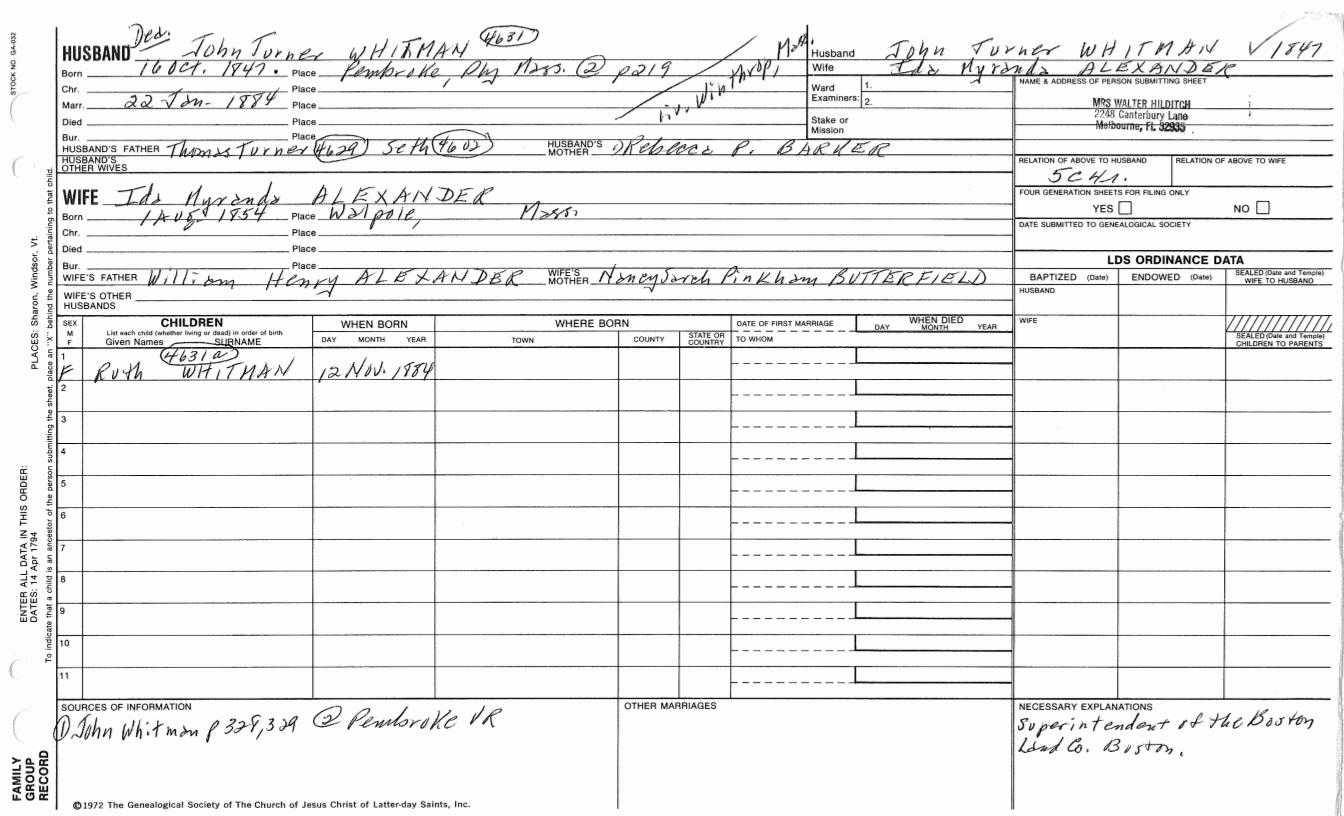 STOCK NO. GA-032
Ded. 4631
HUSBAND John Turner WHITMAN
Born 16 Oct. 1847. Place Pembroke, Ply Mass. ② p219
Chr. Place
Marr. 22 Jan- 1884 Place
Died Place
Bur. Place
liv. Winthrop, Mass.
HUSBAND'S FATHER Thomas Turner 4629 Seth 4602 HUSBAND'S MOTHER Rebecca P. BARKER
HUSBAND'S OTHER WIVES
Husband John Turner WHITMAN √ 1847
Wife Ida Myranda ALEXANDER
Ward
Examiners: 1.
2.
Stake or
Mission
NAME & ADDRESS OF PERSON SUBMITTING SHEET
MRS WALTER HILDITCH
2248 Canterbury Lane
Melbourne, FL 32935
RELATION OF ABOVE TO HUSBAND RELATION OF ABOVE TO WIFE
5C4r.
FOUR GENERATION SHEETS FOR FILING ONLY
YES NO
DATE SUBMITTED TO GENEALOGICAL SOCIETY
WIFE Ida Myranda ALEXANDER
Born 1 Aug 1854 Place Walpole, Mass.
Chr. Place
Died Place
Bur. Place
WIFE'S FATHER William Henry ALEXANDER WIFE'S MOTHER Nancy Sarah Pinkham BUTTERFIELD
WIFE'S OTHER
HUSBANDS
LDS ORDINANCE DATA
BAPTIZED (Date) ENDOWED (Date) SEALED (Date and Temple) WIFE TO HUSBAND
HUSBAND
WIFE
SEALED (Date and Temple) CHILDREN TO PARENTS
SEX
M
F
CHILDREN
List each child (whether living or dead) in order of birth
Given Names SURNAME
WHEN BORN
DAY MONTH YEAR
WHERE BORN
TOWN COUNTY STATE OR COUNTRY
DATE OF FIRST MARRIAGE
TO WHOM
WHEN DIED
DAY MONTH YEAR
1 4631a
F Ruth WHITMAN 12 Nov. 1884
2
3
4
5
6
7
8
9
10
11
SOURCES OF INFORMATION
① John Whitman p 328, 329 ② Pembroke VR
OTHER MARRIAGES
NECESSARY EXPLANATIONS
Superintendent of the Boston
Land Co. Boston.
ENTER ALL DATA IN THIS ORDER:
DATES: 14 Apr 1794
PLACES: Sharon, Windsor, Vt.
To indicate that a child is an ancestor of the person submitting the sheet, place an "X" behind the number pertaining to that child.
FAMILY
GROUP
RECORD
©1972 The Genealogical Society of The Church of Jesus Christ of Latter-day Saints, Inc.